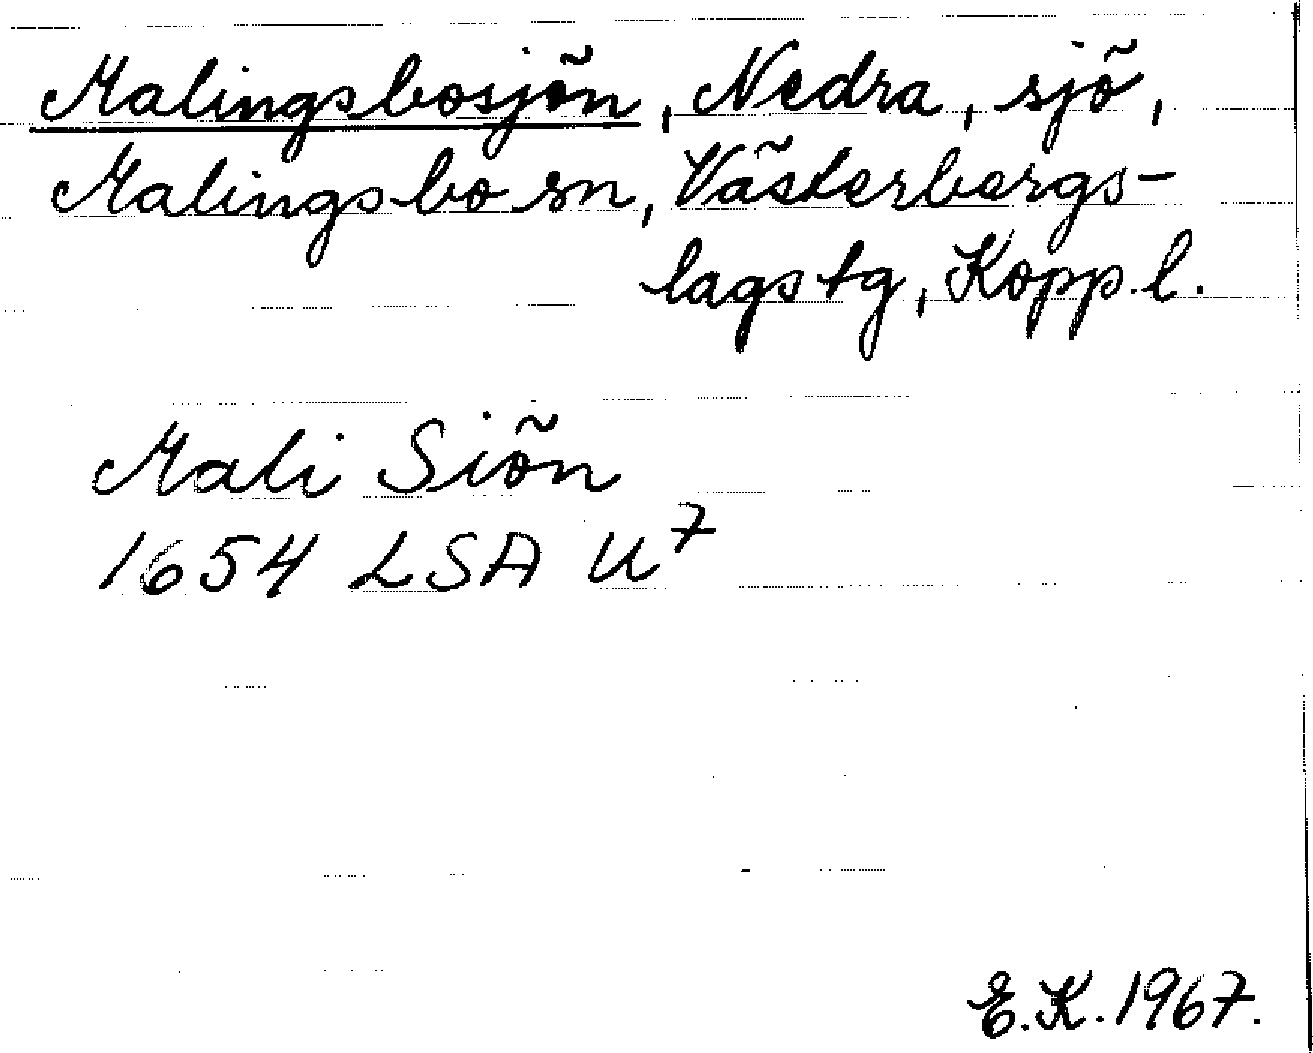 Malingsbosjön, Nedra, sjö,
Malingsbo sn, Västerbergs-
lags tg, Kopp. l.
Mali Siön
1654 LSA U⁷
E.K. 1967.